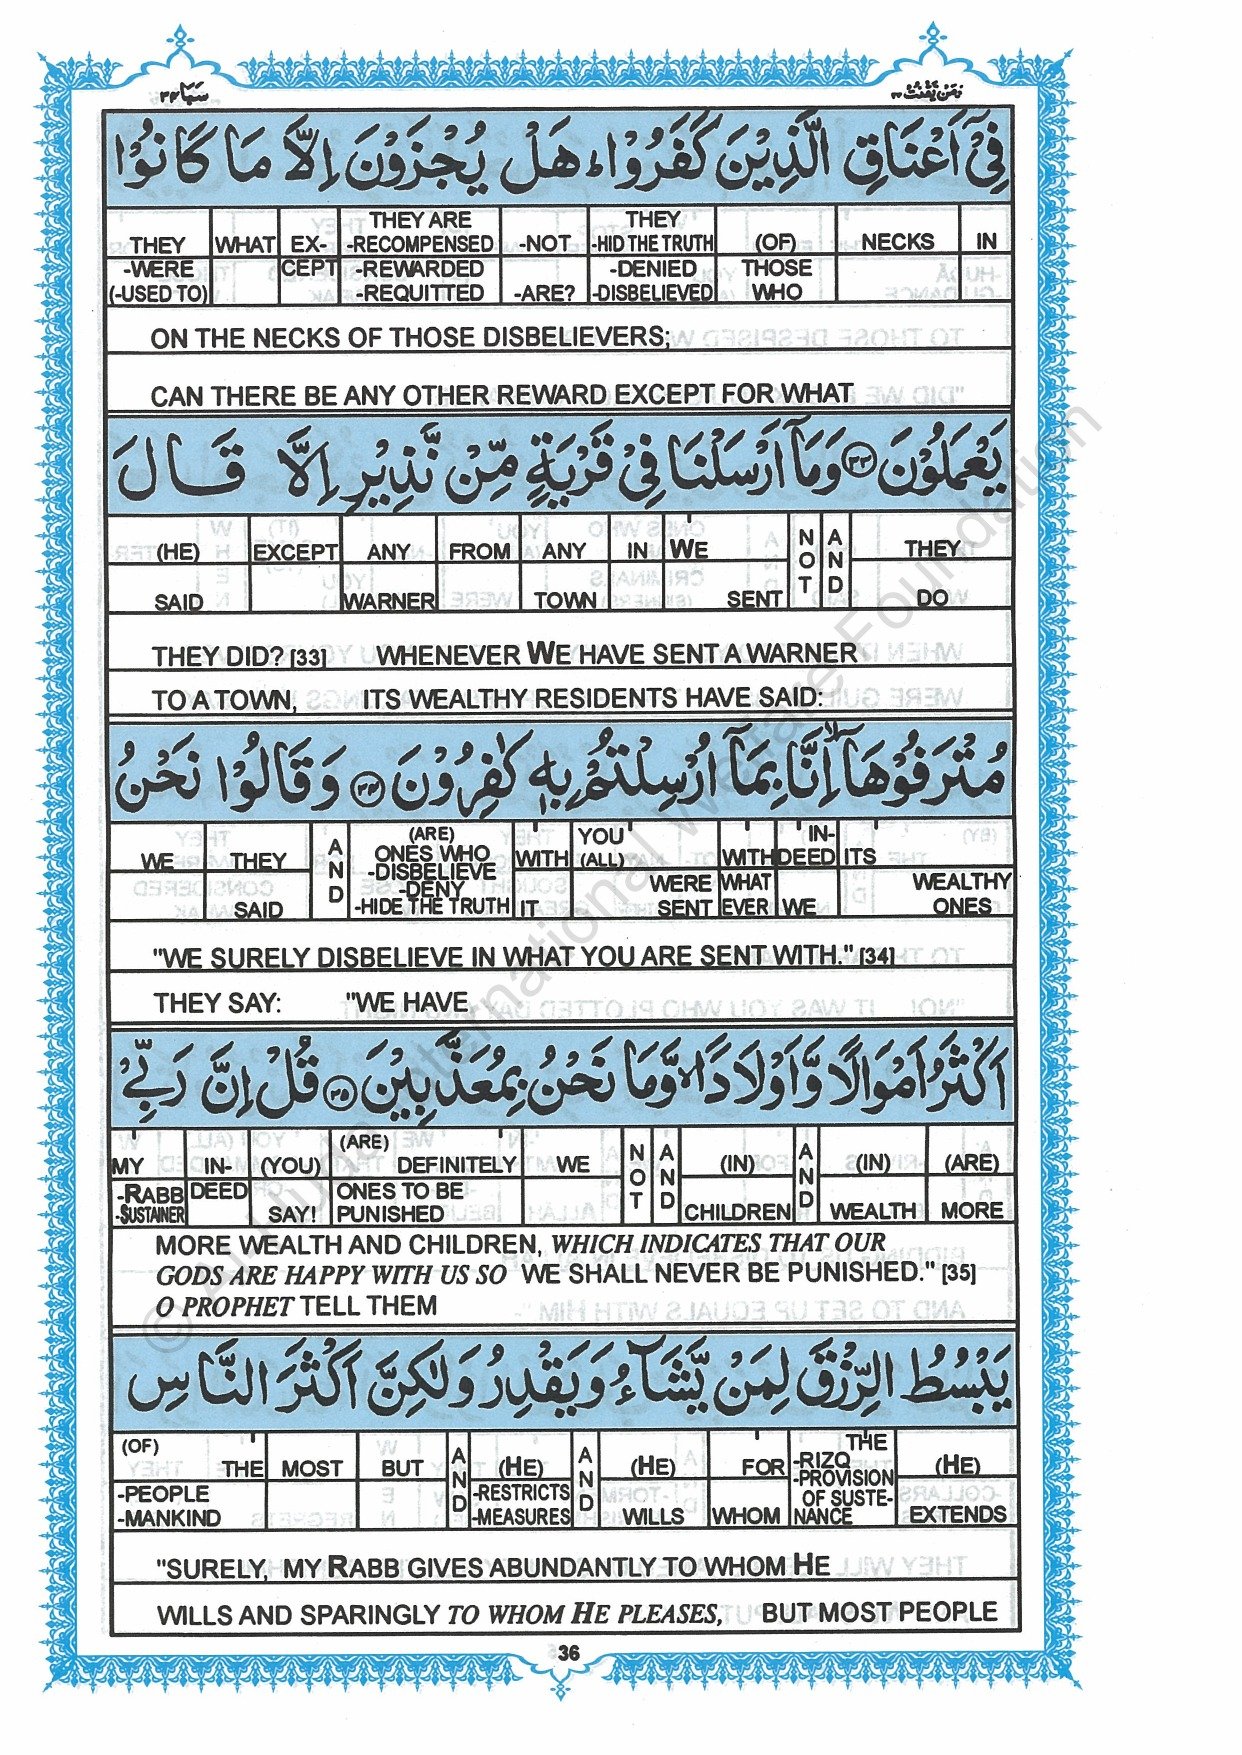 سَبَا ٣٤
وَمَنْ يَّقْنُتْ ٢٢
فِيْٓ اَعْنَاقِ الَّذِيْنَ كَفَرُوْا ؕ هَلْ يُجْزَوْنَ اِلَّا مَا كَانُوْا
THEY -WERE (-USED TO) WHAT EX- CEPT THEY ARE -RECOMPENSED -REWARDED -REQUITTED -NOT -ARE? THEY -HID THE TRUTH -DENIED -DISBELIEVED (OF) THOSE WHO NECKS IN
ON THE NECKS OF THOSE DISBELIEVERS;
CAN THERE BE ANY OTHER REWARD EXCEPT FOR WHAT
يَعْمَلُوْنَ ۝٣٣ وَمَآ اَرْسَلْنَا فِيْ قَرْيَةٍ مِّنْ نَّذِيْرٍ اِلَّا قَالَ
(HE) SAID EXCEPT ANY WARNER FROM ANY TOWN IN WE SENT NOT AND THEY DO
THEY DID? [33] WHENEVER WE HAVE SENT A WARNER
TO A TOWN, ITS WEALTHY RESIDENTS HAVE SAID:
مُتْرَفُوْهَآ ۙ اِنَّا بِمَآ اُرْسِلْتُمْ بِهٖ كٰفِرُوْنَ ۝٣٤ وَقَالُوْا نَحْنُ
WE THEY SAID AND (ARE) ONES WHO -DISBELIEVE -DENY -HIDE THE TRUTH WITH IT YOU (ALL) WERE SENT WITH WHAT EVER IN- DEED WE ITS WEALTHY ONES
"WE SURELY DISBELIEVE IN WHAT YOU ARE SENT WITH." [34]
THEY SAY: "WE HAVE
اَكْثَرُ اَمْوَالًا وَّاَوْلَادًا ۙ وَّمَا نَحْنُ بِمُعَذَّبِيْنَ ۝٣٥ قُلْ اِنَّ رَبِّيْ
MY -RABB -SUSTAINER IN- DEED (YOU) SAY! (ARE) DEFINITELY ONES TO BE PUNISHED WE NOT AND (IN) CHILDREN AND (IN) WEALTH (ARE) MORE
MORE WEALTH AND CHILDREN, WHICH INDICATES THAT OUR
GODS ARE HAPPY WITH US SO WE SHALL NEVER BE PUNISHED." [35]
O PROPHET TELL THEM
يَبْسُطُ الرِّزْقَ لِمَنْ يَّشَآءُ وَيَقْدِرُ وَلٰكِنَّ اَكْثَرَ النَّاسِ
(OF) THE -PEOPLE -MANKIND MOST BUT AND (HE) -RESTRICTS -MEASURES AND (HE) WILLS FOR WHOM THE -RIZQ -PROVISION OF SUSTE- NANCE (HE) EXTENDS
"SURELY, MY RABB GIVES ABUNDANTLY TO WHOM HE
WILLS AND SPARINGLY TO WHOM HE PLEASES, BUT MOST PEOPLE
36
International Welfare Foundation